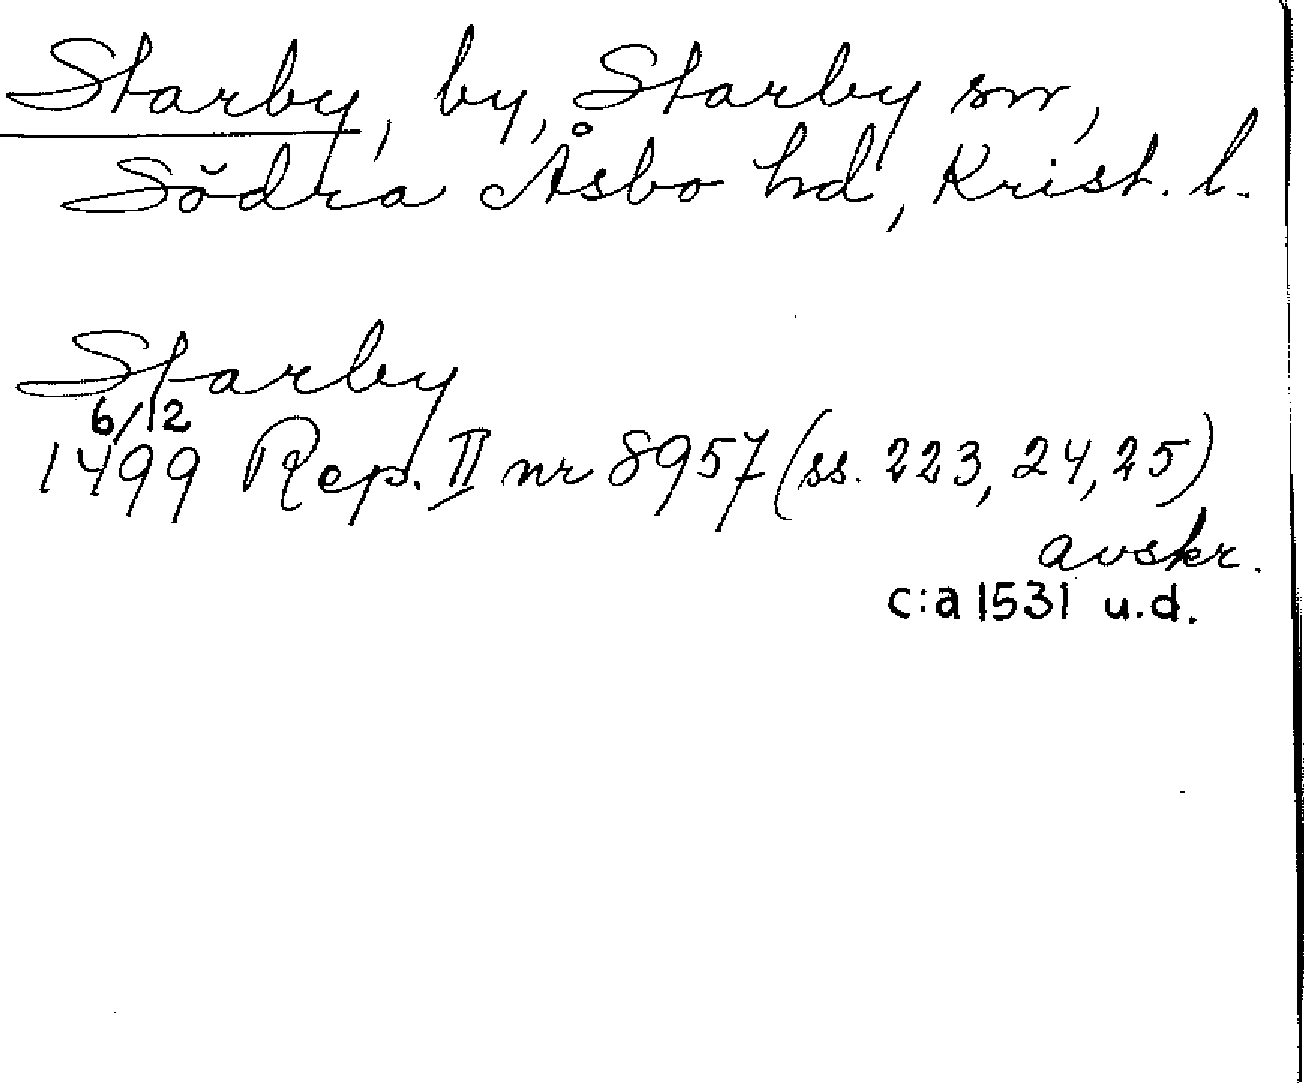 Starby, by, Starby sn,
Södra Åsbo hd, Krist. l.
Starby
6/12
1499 Rep. II nr 8957 (ss. 223, 24, 25)
avskr.
c:a 1531 u.d.